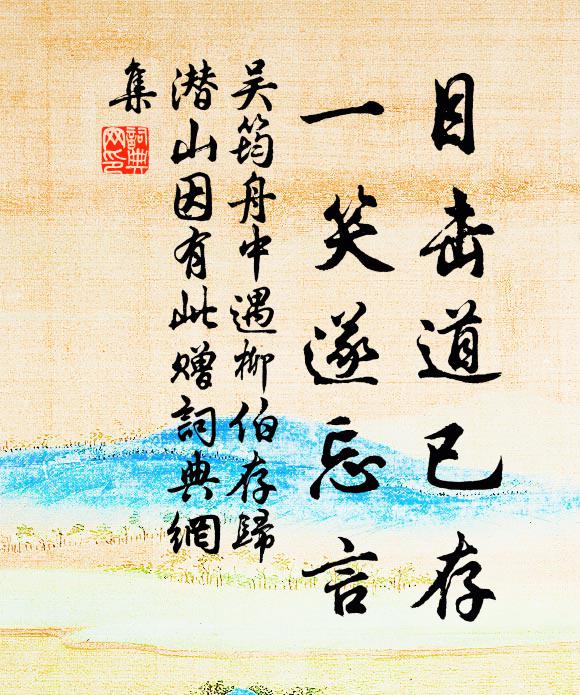 目击道已存
一笑遂忘言
吴筠舟中遇柳伯存歸
潜山因有此赠詞典網
集
詞典
网印